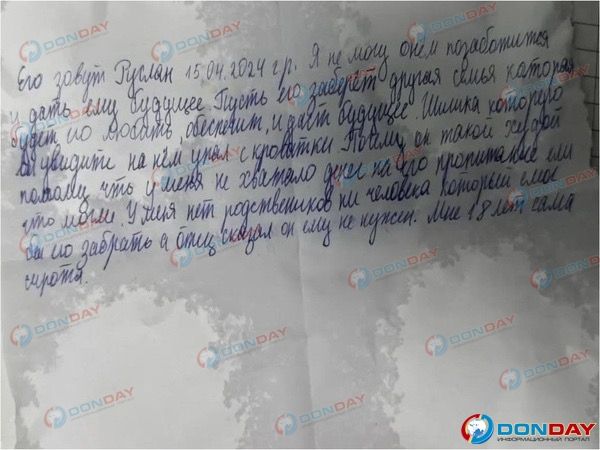 Его зовут Руслан 15.04.2024 г.р. Я не могу о нём позаботится
и дать ему будущее. Пусть его заберёт другая семья которая
будет его любить, обеспечит, и даст будущее. Шишка которую
вы увидите на нём упал с кроватки. Поэтому он такой худой
потому, что у меня не хватало денег на его пропитание ели
что могли. У меня нет родствеников ни человека который смог
бы его забрать а отец сказал он ему не нужен. Мне 18 лет сама
сирота.
DONDAY
ИНФОРМАЦИОННЫЙ ПОРТАЛ